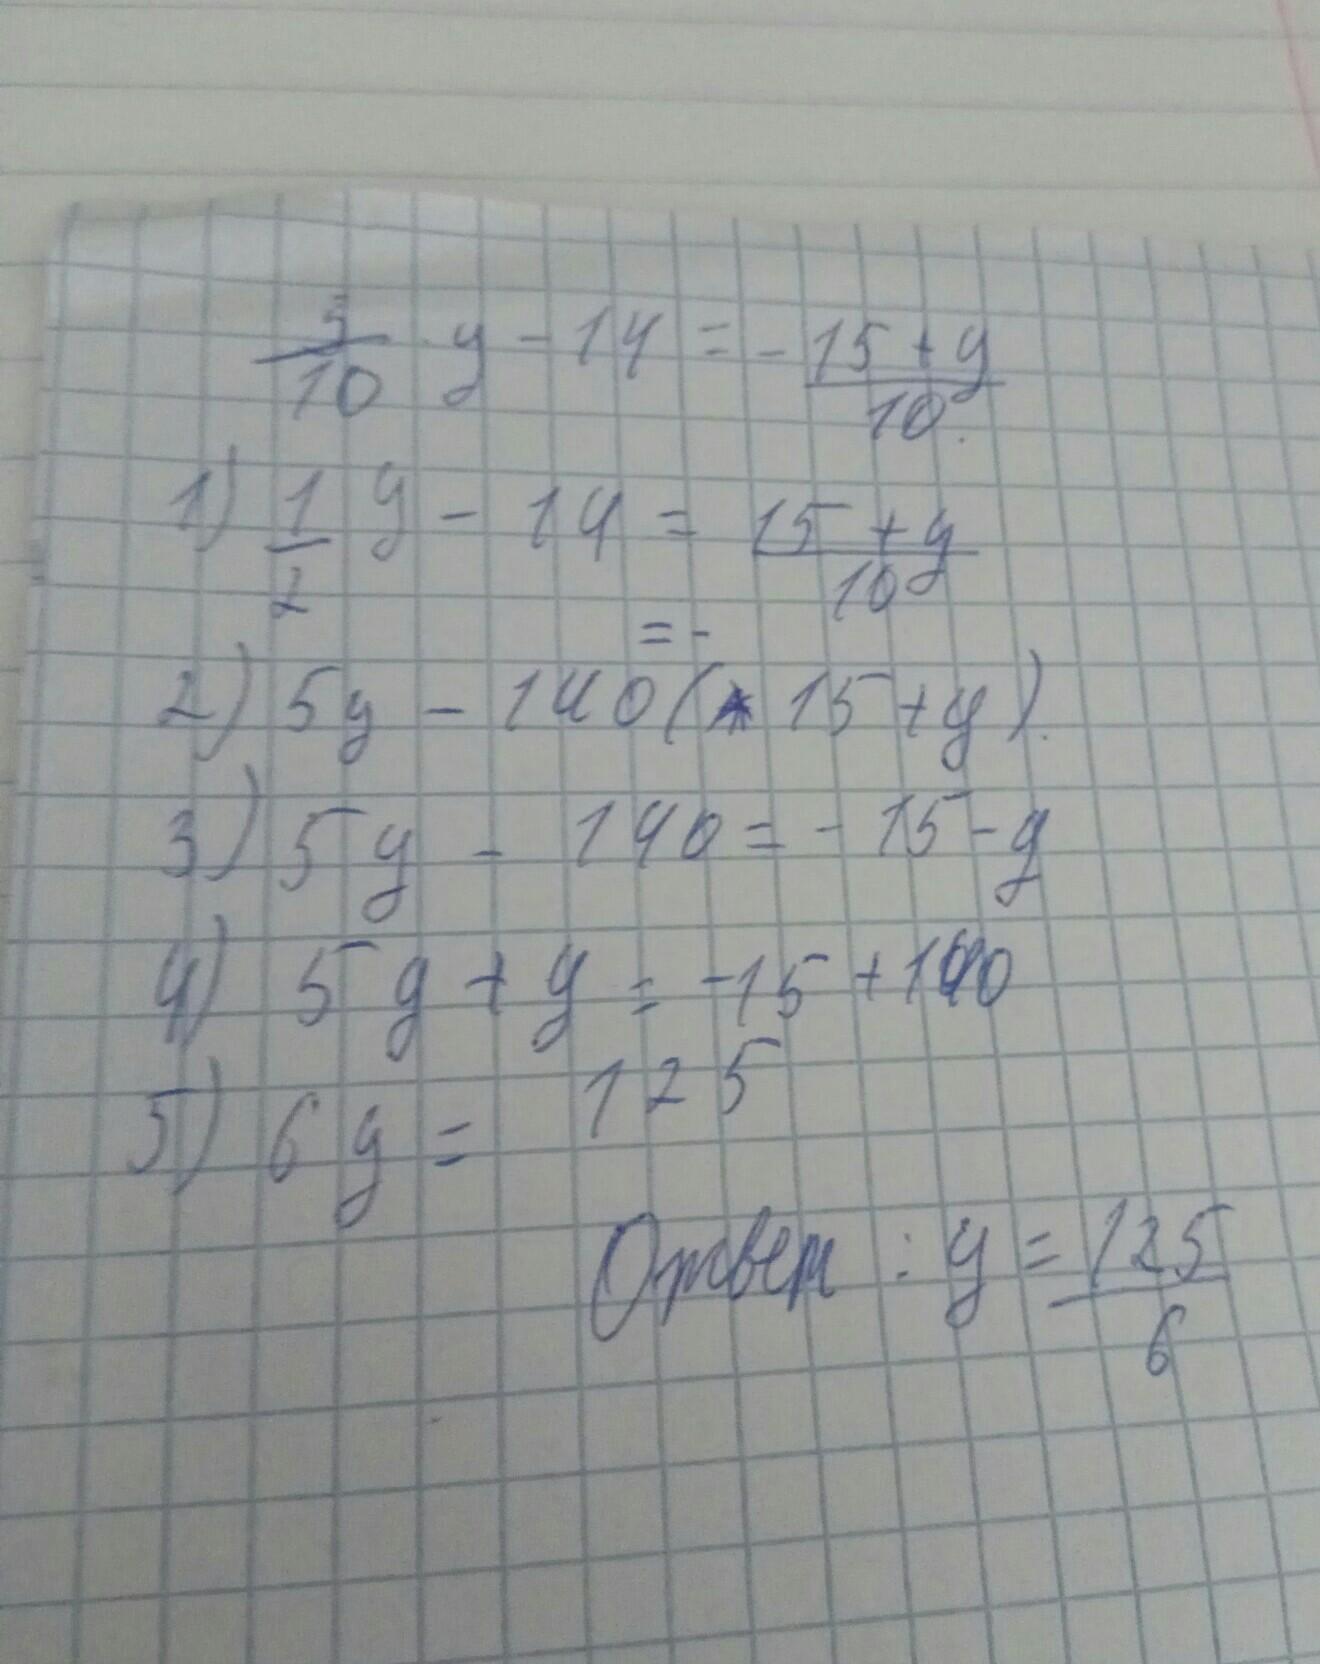 5/10 y - 14 = - 15 + y/10
1) 1/2 y - 14 = 15 + y/10
= -
2) 5y - 140 ( 15 + y).
3) 5y - 140 = - 15 - y
4) 5y + y = -15 + 140
5) 6y = 125
Ответ : y = 125/6